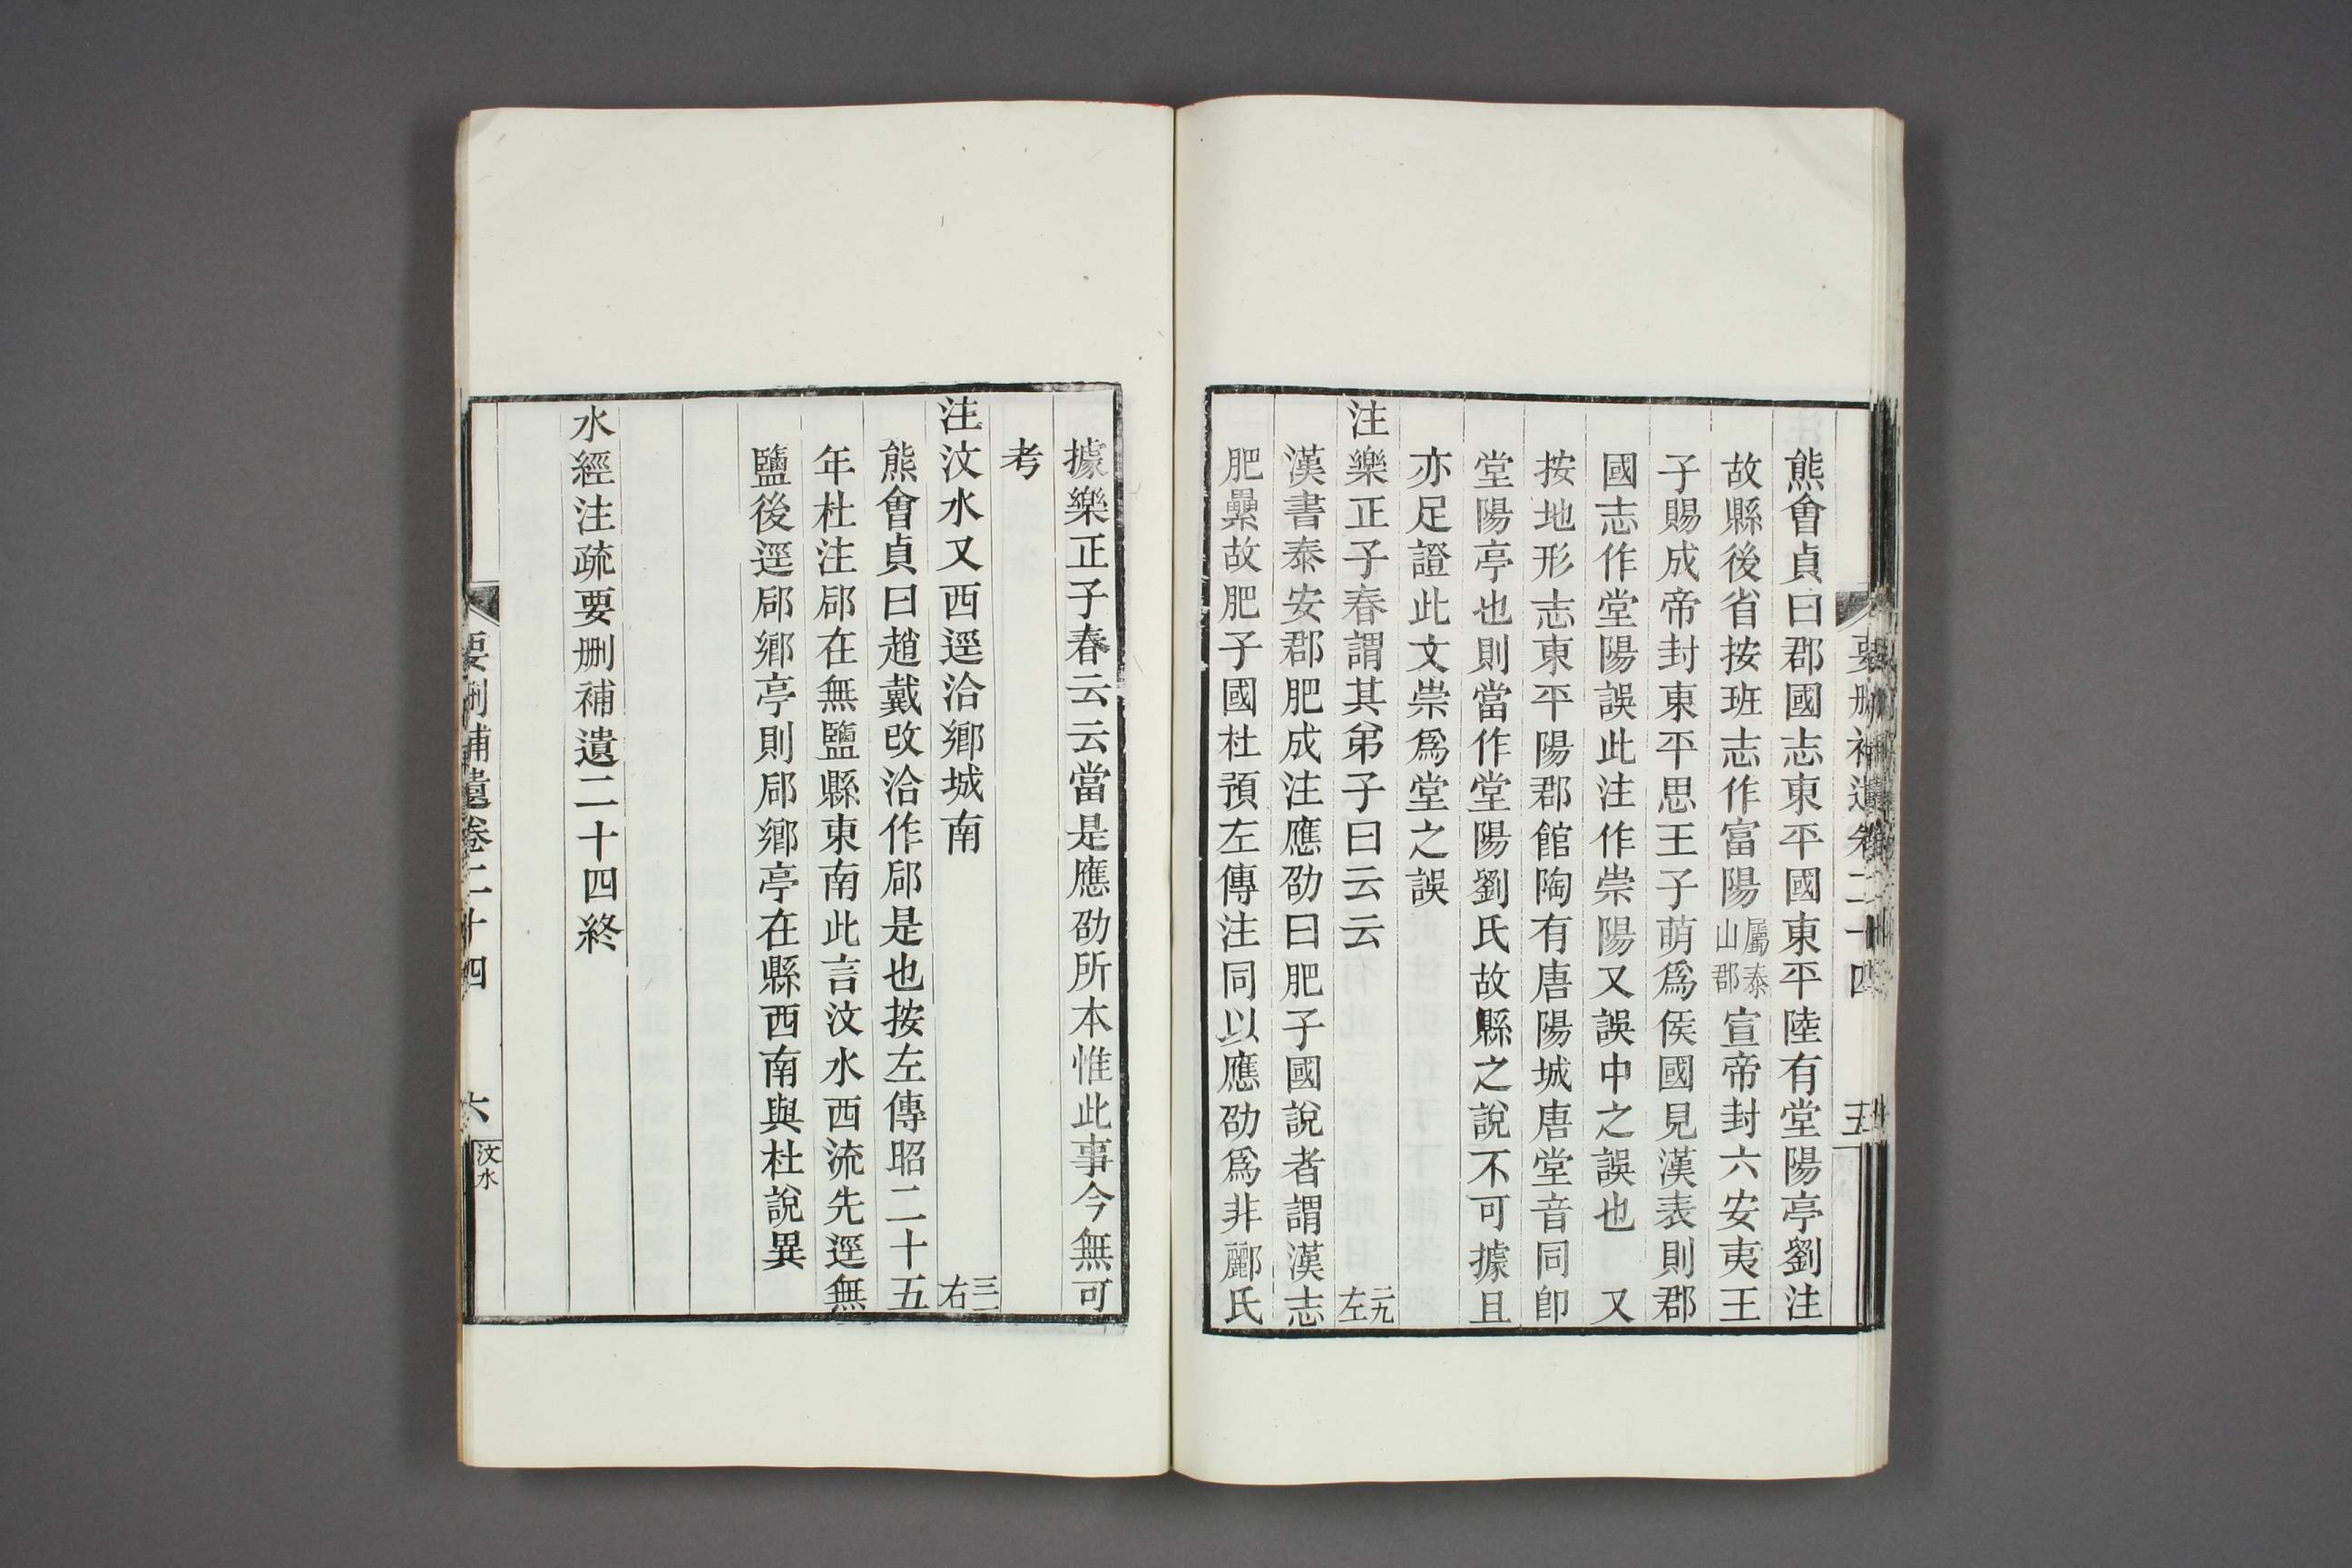 要刪補遺卷二十四 五
熊會貞曰郡國志東平國東平陸有堂陽亭劉注
故縣後省按班志作富陽屬泰山郡宣帝封六安夷王
子賜成帝封東平思王子萌爲侯國見漢表則郡
國志作堂陽誤此注作崇陽又誤中之誤也 又
按地形志東平陽郡館陶有唐陽城唐堂音同卽
堂陽亭也則當作堂陽劉氏故縣之說不可據且
亦足證此文崇爲堂之誤
注樂正子春謂其弟子曰云云 二九左
漢書泰安郡肥成注應劭曰肥子國說者謂漢志
肥纍故肥子國杜預左傳注同以應劭爲非酈氏
據樂正子春云云當是應劭所本惟此事今無可
考
注汶水又西逕洽鄉城南 三一右
熊會貞曰趙戴改洽作郈是也按左傳昭二十五
年杜注郈在無鹽縣東南此言汶水西流先逕無
鹽後逕郈鄉亭則郈鄉亭在縣西南與杜說異
水經注疏要刪補遺二十四終
要刪補遺卷二十四 六 汶水